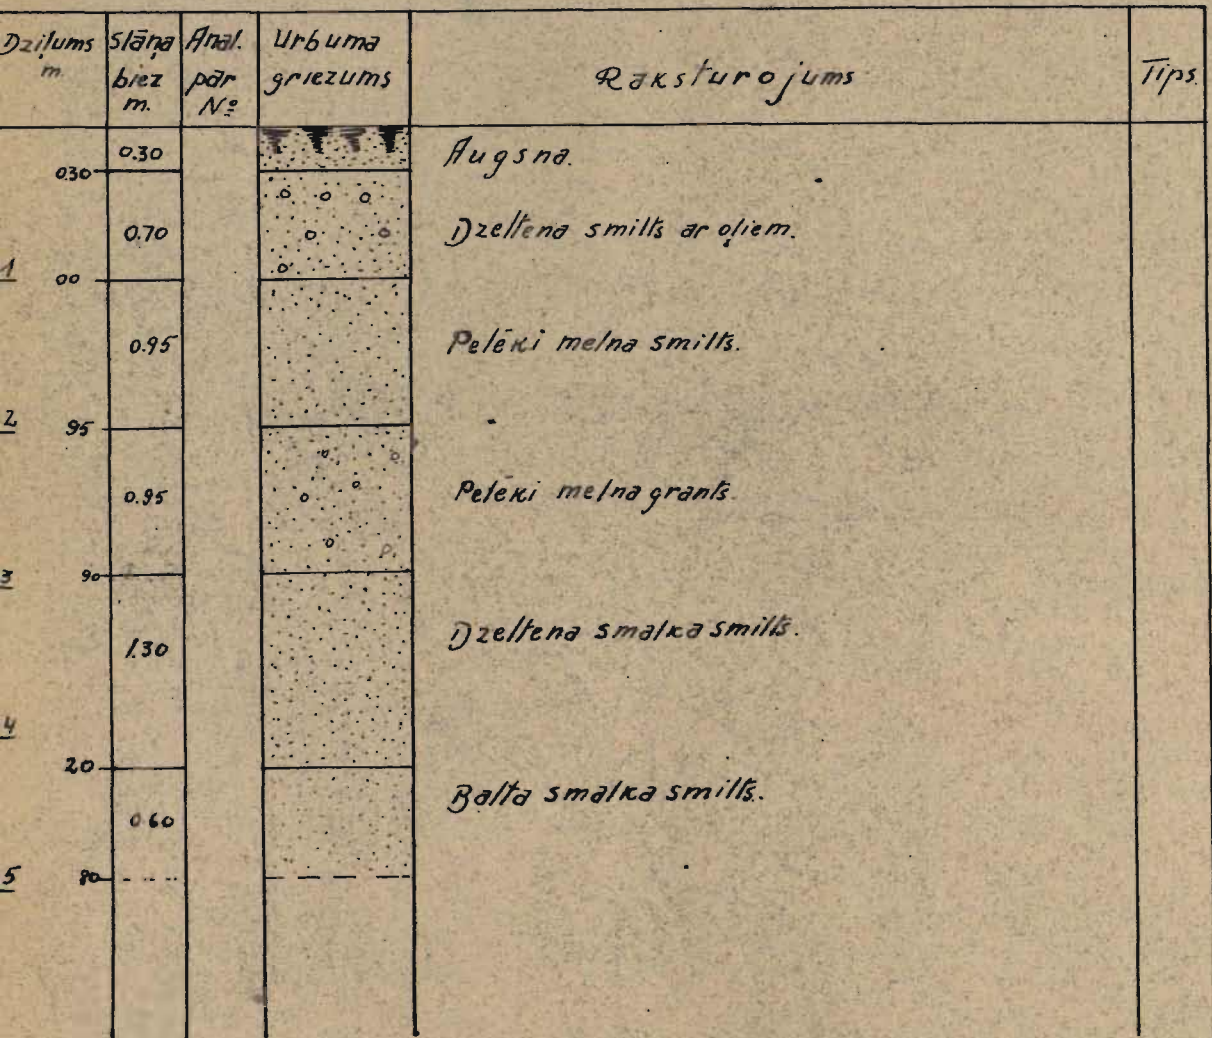 Dziļums m.
Slāņa biez m.
Anal. par Nº
Urbuma griezums
Raksturojums
Tips.
0.30
Augsna.
030
0.70
Dzeltena smilts ar oļiem.
1 00
0.95
Pelēki melna smilts.
2 95
0.95
Pelēki melna grants.
3 90
1.30
Dzeltena smalka smilts.
4
20
Balta smalka smilts.
0.60
5 80